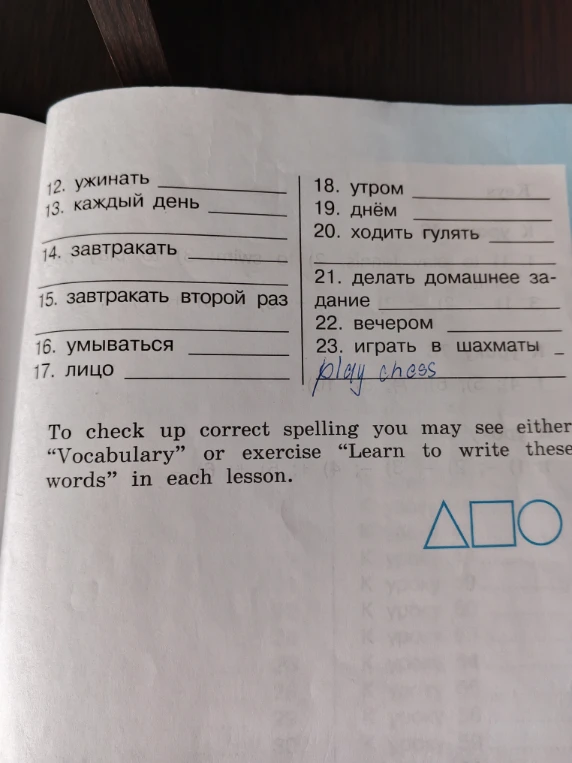 12. ужинать
13. каждый день
14. завтракать
15. завтракать второй раз
16. умываться
17. лицо
18. утром
19. днём
20. ходить гулять
21. делать домашнее за-
дание
22. вечером
23. играть в шахматы
play chess
To check up correct spelling you may see either
“Vocabulary” or exercise “Learn to write these
words” in each lesson.